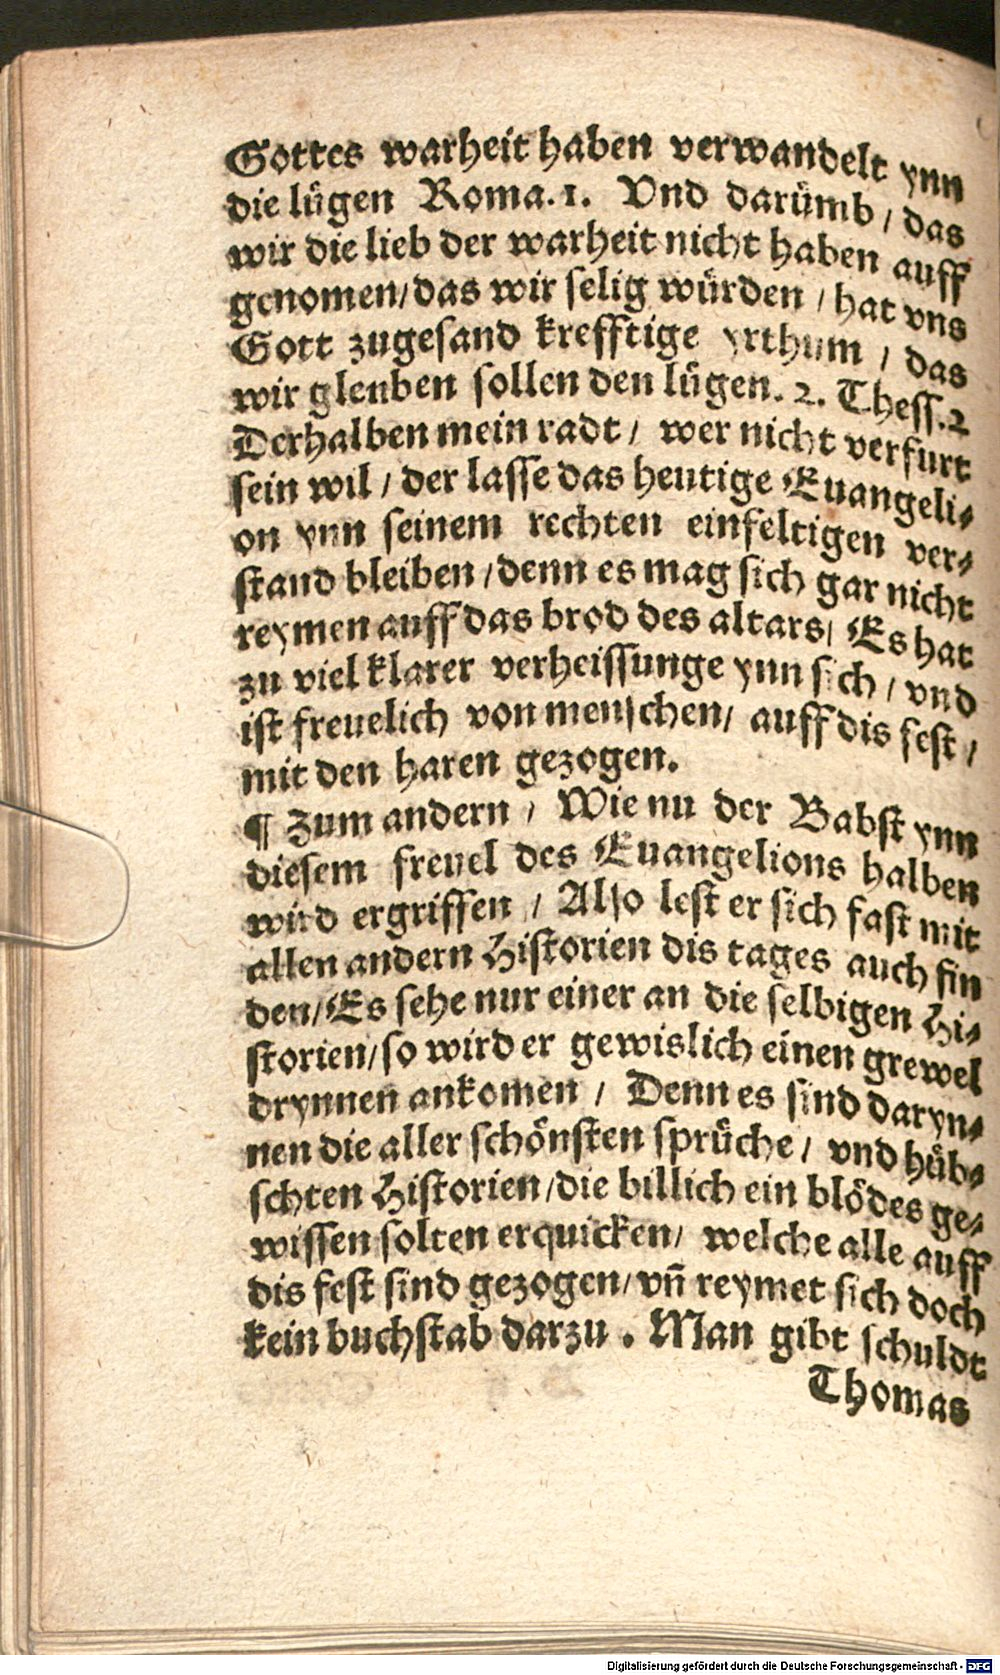 Gottes warheit haben verwandelt ynn
die lügen Roma.1. Vnd darümb / das
wir die lieb der warheit nicht haben auff
genomen/das wir selig würden / hat vns
Gott zugesand krefftige yrthum / das
wir gleuben sollen den lügen. 2. Thess.2
Derhalben mein radt / wer nicht verfurt
sein wil / der lasse das heutige Euangeli⸗
on ynn seinem rechten einfeltigen ver⸗
stand bleiben /denn es mag sich gar nicht
reymen auff das brod des altars/ Es hat
zu viel klarer verheissunge ynn sich / vnd
ist freuelich von menschen/ auff dis fest /
mit den haren gezogen.
¶ Zum andern / Wie nu der Babst ynn
diesem freuel des Euangelions halben
wird ergriffen / Also lest er sich fast mit
allen andern Historien dis tages auch fin
den/Es sehe nur einer an die selbigen Hi⸗
storien/so wird er gewislich einen grewel
drynnen ankomen / Denn es sind daryn⸗
nen die aller schönsten sprüche / vnd hüb⸗
schten Historien/die billich ein blödes ge⸗
wissen solten erquicken/ welche alle auff
dis fest sind gezogen/vñ reymet sich doch
kein buchstab darzu . Man gibt schuldt
Thomas
Digitalisierung gefördert durch die Deutsche Forschungsgemeinschaft - DFG